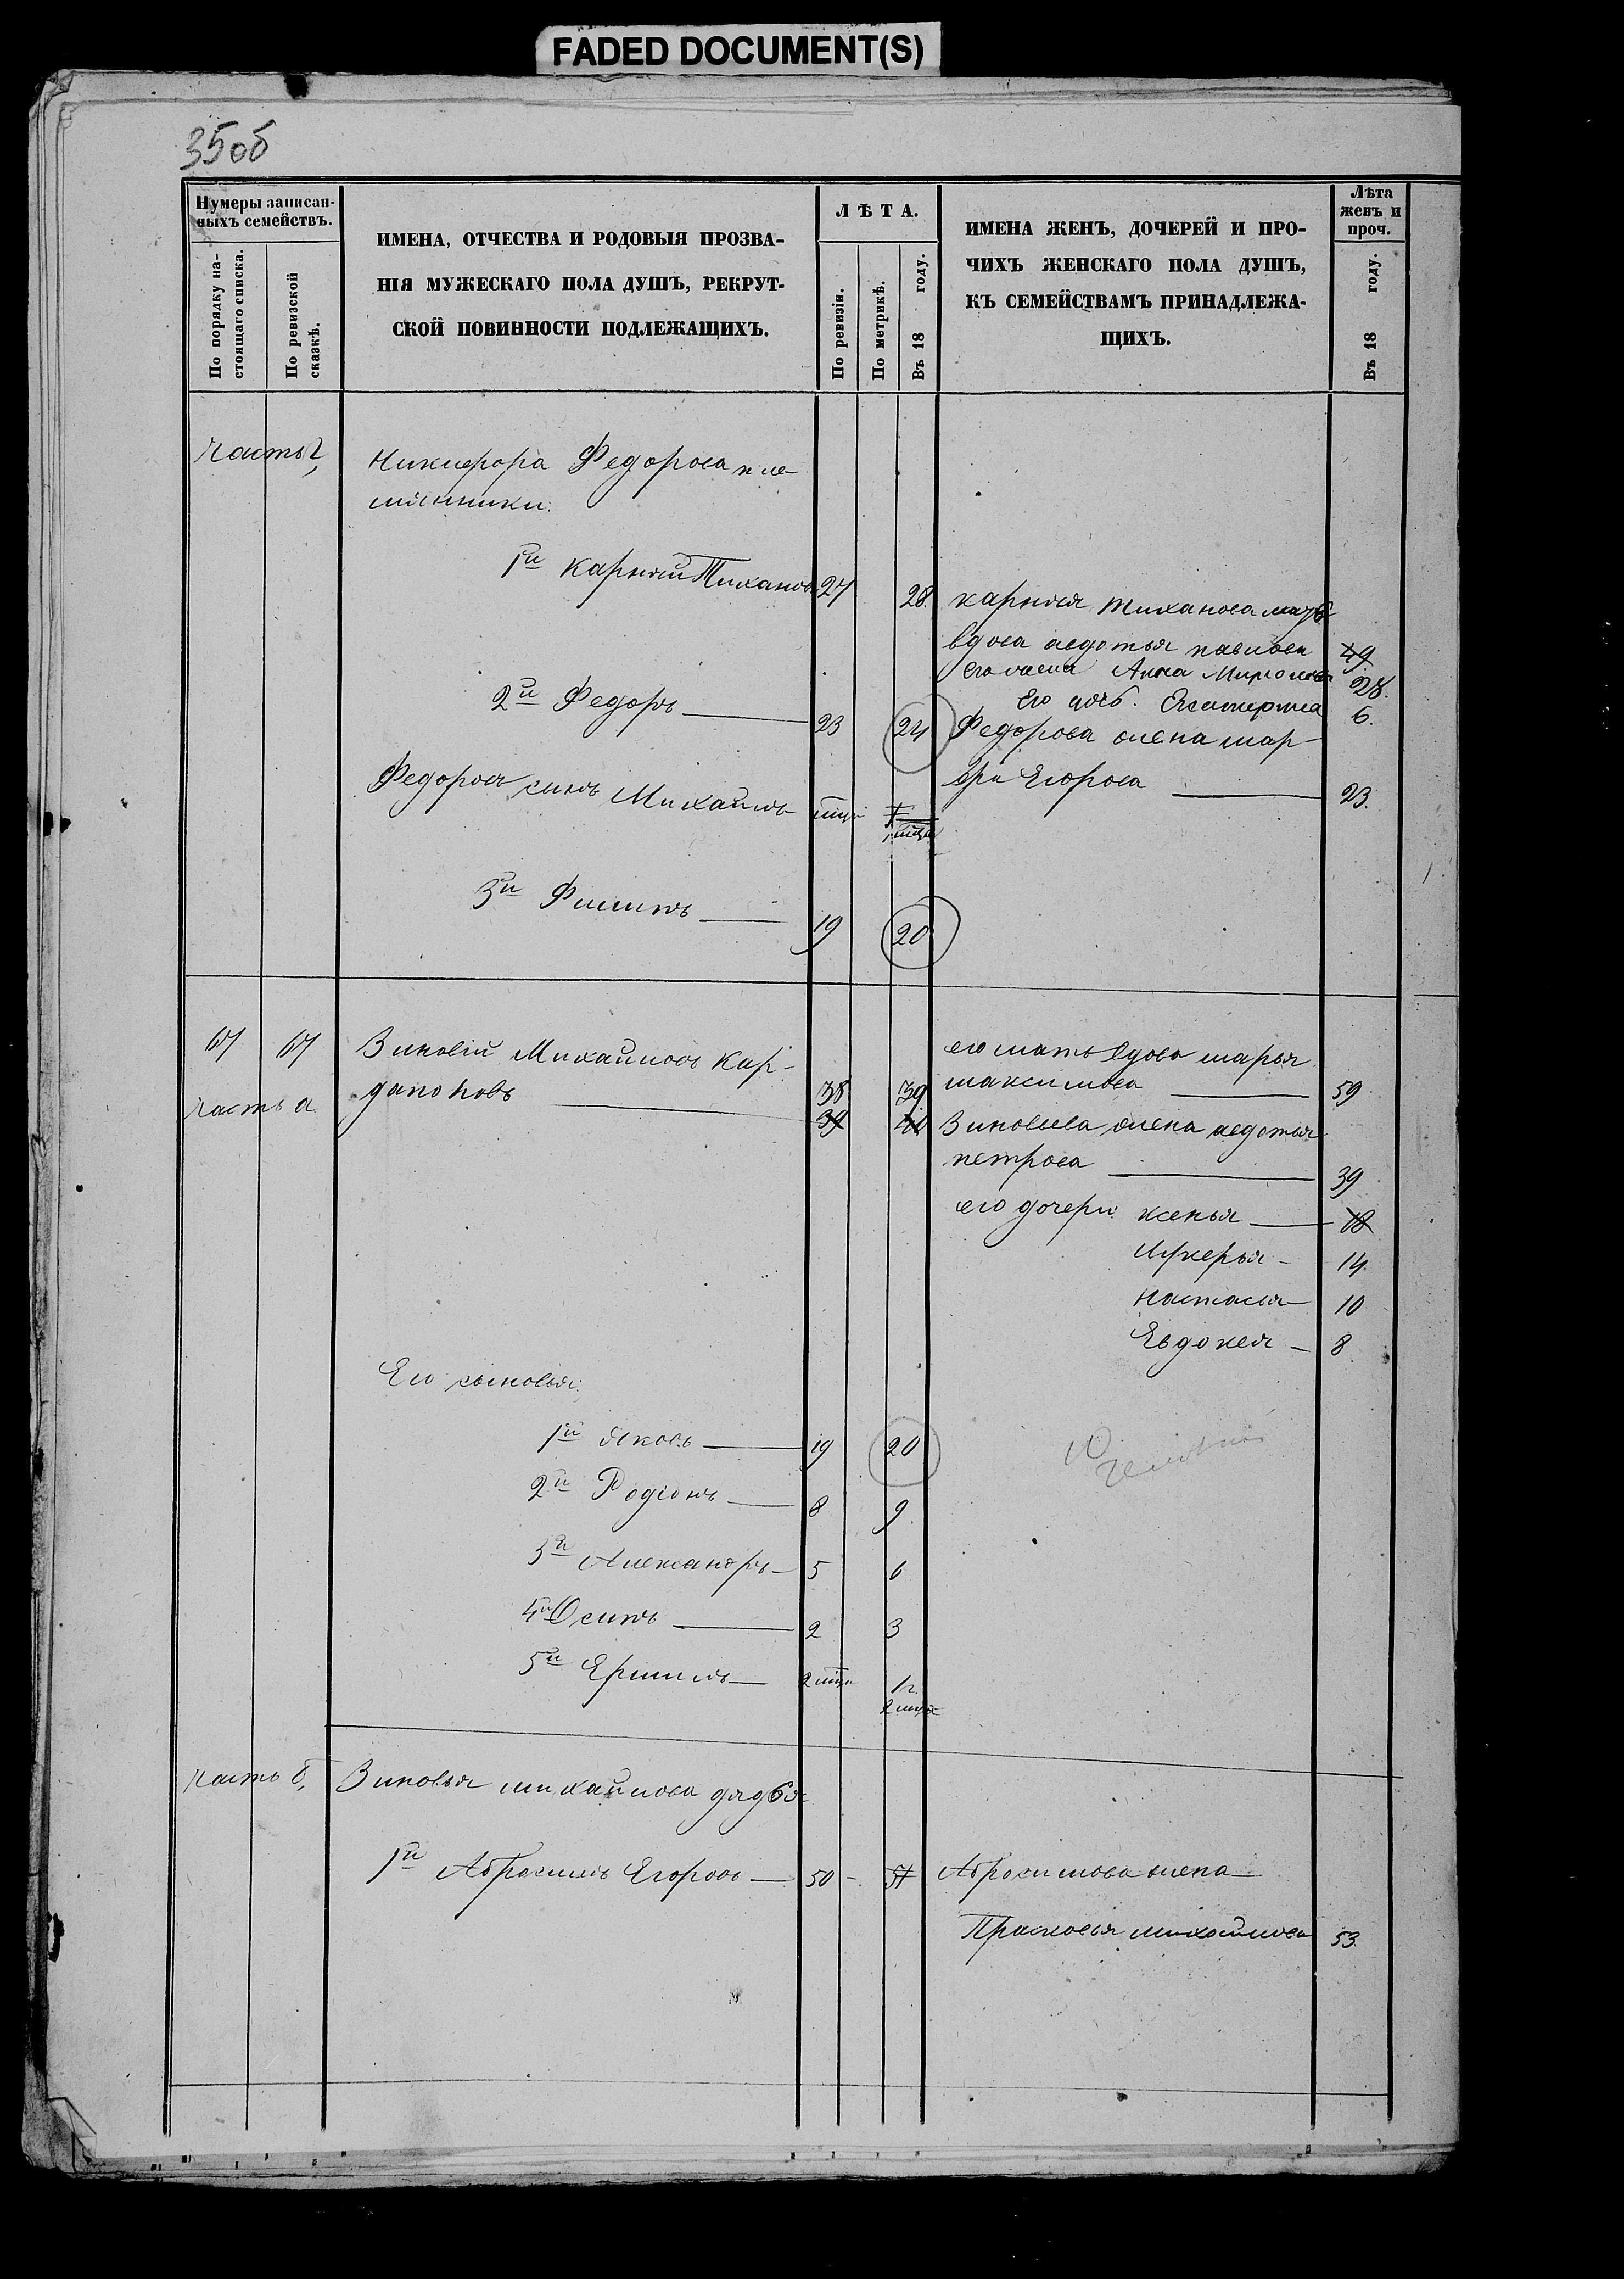 FADED DOCUMENT(S)
35об
Нумеры записан-
ныхъ семействъ.
По порядку на-
стоящаго списка.
По ревизской
сказкѣ.
ИМЕНА, ОТЧЕСТВА И РОДОВЫЯ ПРОЗВА-
НІЯ МУЖЕСКАГО ПОЛА ДУШЪ, РЕКРУТ-
СКОЙ ПОВИННОСТИ ПОДЛЕЖАЩИХЪ.
ЛѢТА.
По ревизіи.
По метрикѣ.
Въ 18 году.
ИМЕНА ЖЕНЪ, ДОЧЕРЕЙ И ПРО-
ЧИХЪ ЖЕНСКАГО ПОЛА ДУШЪ,
КЪ СЕМЕЙСТВАМЪ ПРИНАДЛЕЖА-
ЩИХЪ.
Лѣта
женъ и
проч.
Въ 18 году.
часть
Никифора Федорова пле-
мянники:
1й карнѣй Тихановъ 27 28
карнѣя тиханова мать
вдова авдотья павлова 49
его жена Анна Миронова 28.
Его дочь. Екатерина 6.
2й Федоръ 23 24
Федорова жена мар-
фа Егорова 23.
Федоровъ сынъ Михайлъ
3й Филипъ 19 20
67 67 Зиновій Михайловъ Кар-
часть а. дапоновъ 38 39
39 40
его мать вдова марья
максимова 59
Зиновьева жена авдотья
петрова 39
его дочери: ксенья 18
Лукерья 14
настасья 10
Евдокея 8
Его сыновья:
1й яковъ 19 20
2й Родіонъ 8 9
3й Александръ 5 6
4й Осипъ 2 3
5й Ермилъ 2 мца 1 г.
2 мца
часть б, Зиновья михайлова дядья
1й Абросимъ Егоровъ 50 51
Абросимова жена
Прасковья михайлова 53.